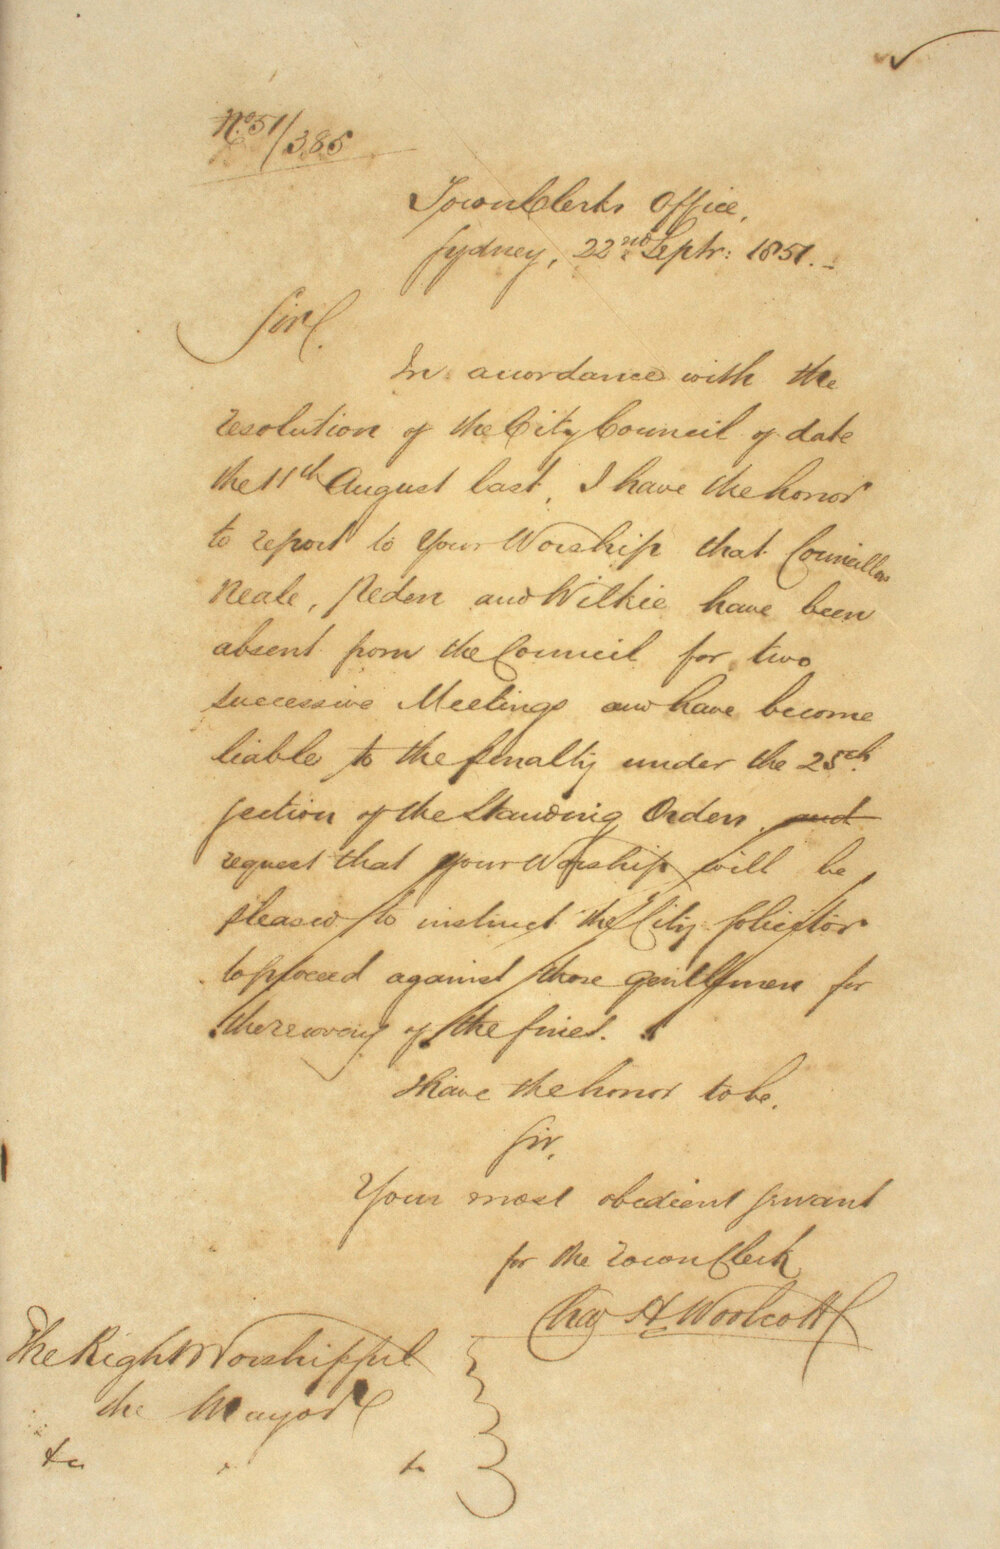 No 51/385
Town Clerks Office,
Sydney, 22nd Septr: 1851.-
Sir,
In accordance with the
resolution of the City Council of date
the 11th August last, I have the honor
to report to Your Worship that Councillors
Neale, Peden and Wilkie have been
absent from the Council for two
successive Meetings and have become
liable to the penalty under the 25th
section of the Standing Orders, and
request that your Worship will be
pleased to instruct the City Solicitor
to proceed against those gentlemen for
the recovery of the fines.
I have the honor to be,
Sir,
Your most obedient servant
for the Town Clerk
Chas H Woolcott
The Right Worshipful
the Mayor
&c &c